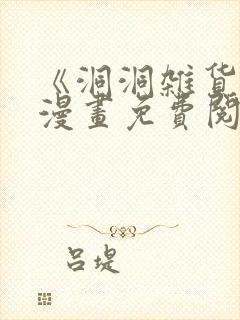 《洞洞雑货
漫畫免費閱
吕堤